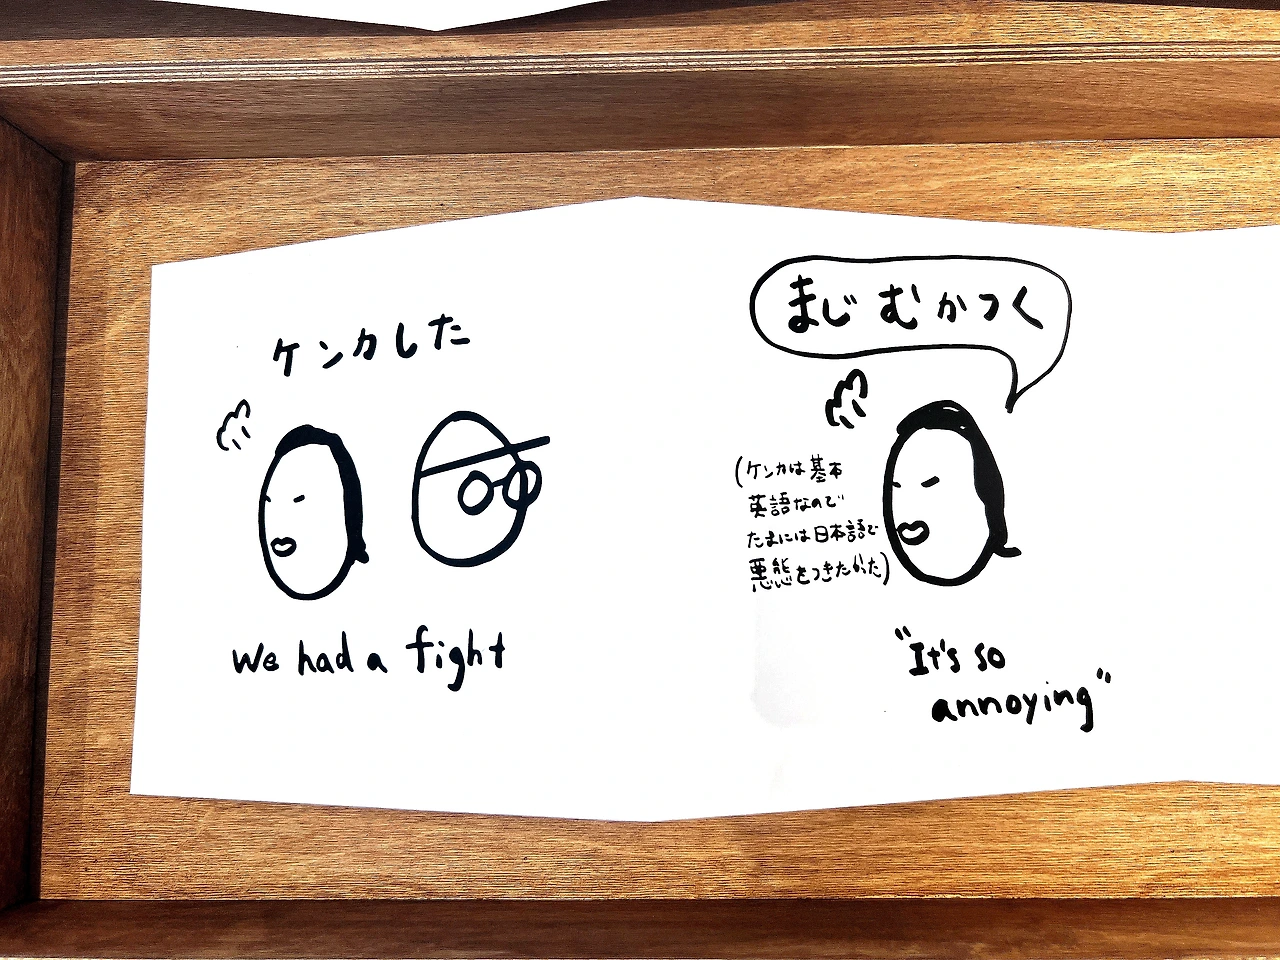 ケンカした
we had a fight
まじ むかつく
(ケンカは基本
英語なので
たまには日本語で
悪態をつきたかった)
"It's so
annoying"